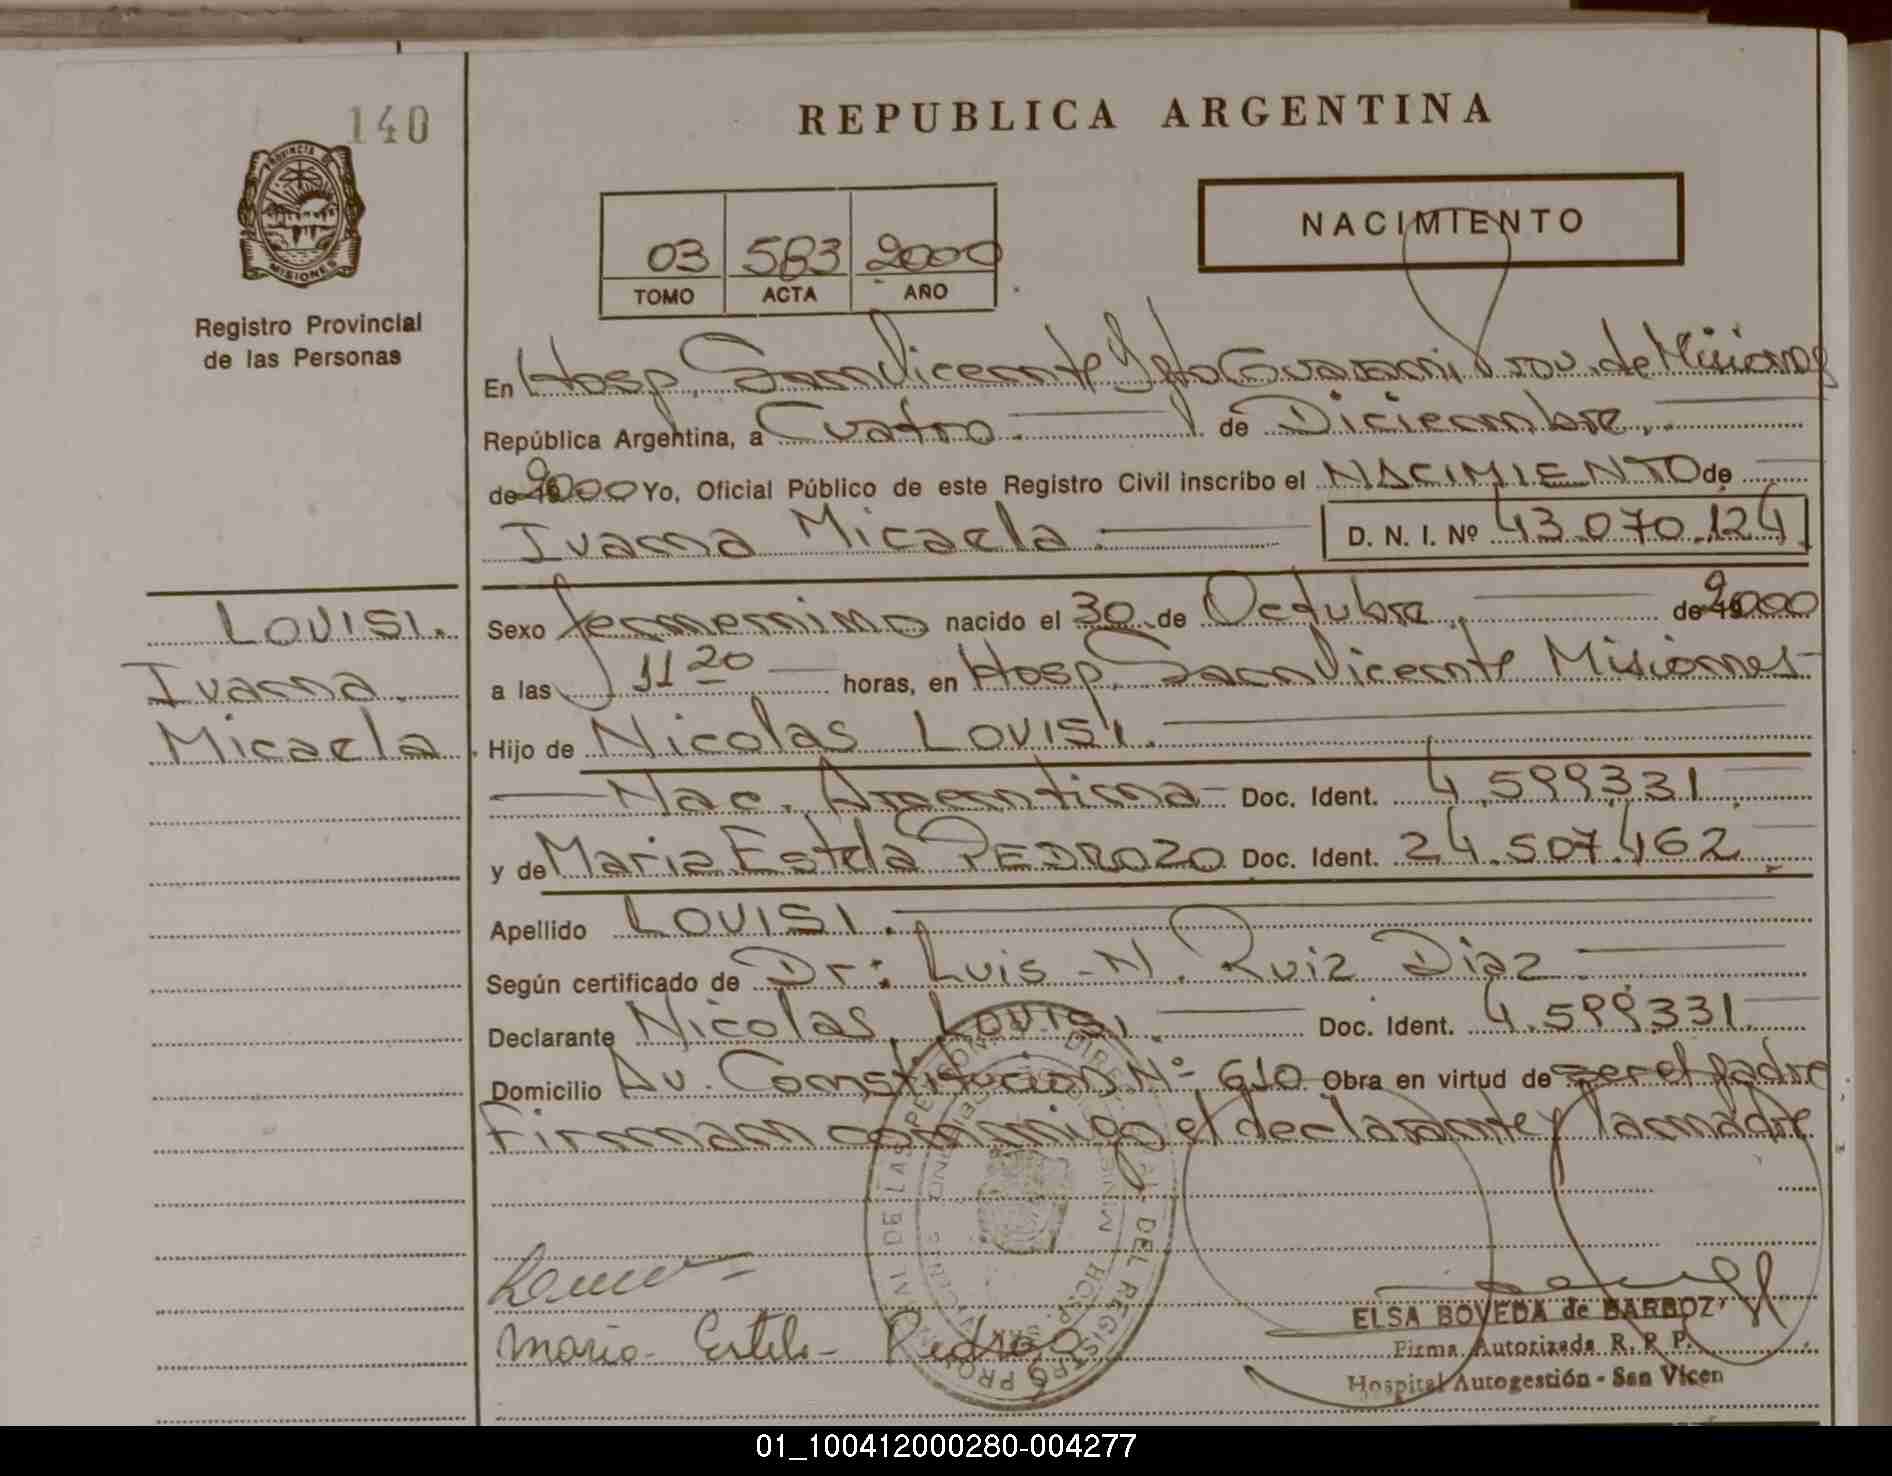 140
REPUBLICA ARGENTINA
PROVINCIA DE MISIONES
Registro Provincial
de las Personas
03 583 2000
TOMO ACTA AÑO
NACIMIENTO
En Hosp. San Vicente Dpto Guarani Prov. de Misiones
República Argentina, a Cuatro de Diciembre
de 2000 Yo, Oficial Público de este Registro Civil inscribo el NACIMIENTO de
Ivana Micaela D. N. I. Nº 43.070.124
LOUISI.
Ivana
Micaela
Sexo femenino nacido el 30 de Octubre de 2000
a las 11 20 horas, en Hosp. San Vicente Misiones
Hijo de Nicolas LOUISI.
Nac. Argentina Doc. Ident. 4.599331
y de Maria Estela PEDROZO Doc. Ident. 24.507.462
Apellido LOUISI.
Según certificado de Dr: Luis N. Ruiz Diaz
Declarante Nicolas LOUISI. Doc. Ident. 4.599331
Domicilio Av. Constitucion Nº 610 Obra en virtud de ser el padre
Firman conmigo el declarante y la madre
Maria Estela Pedrozo
ELSA BOVEDA de BARBOZ
Firma Autorizada R. P. P.
Hospital Autogestión - San Vicen
01_100412000280-004277